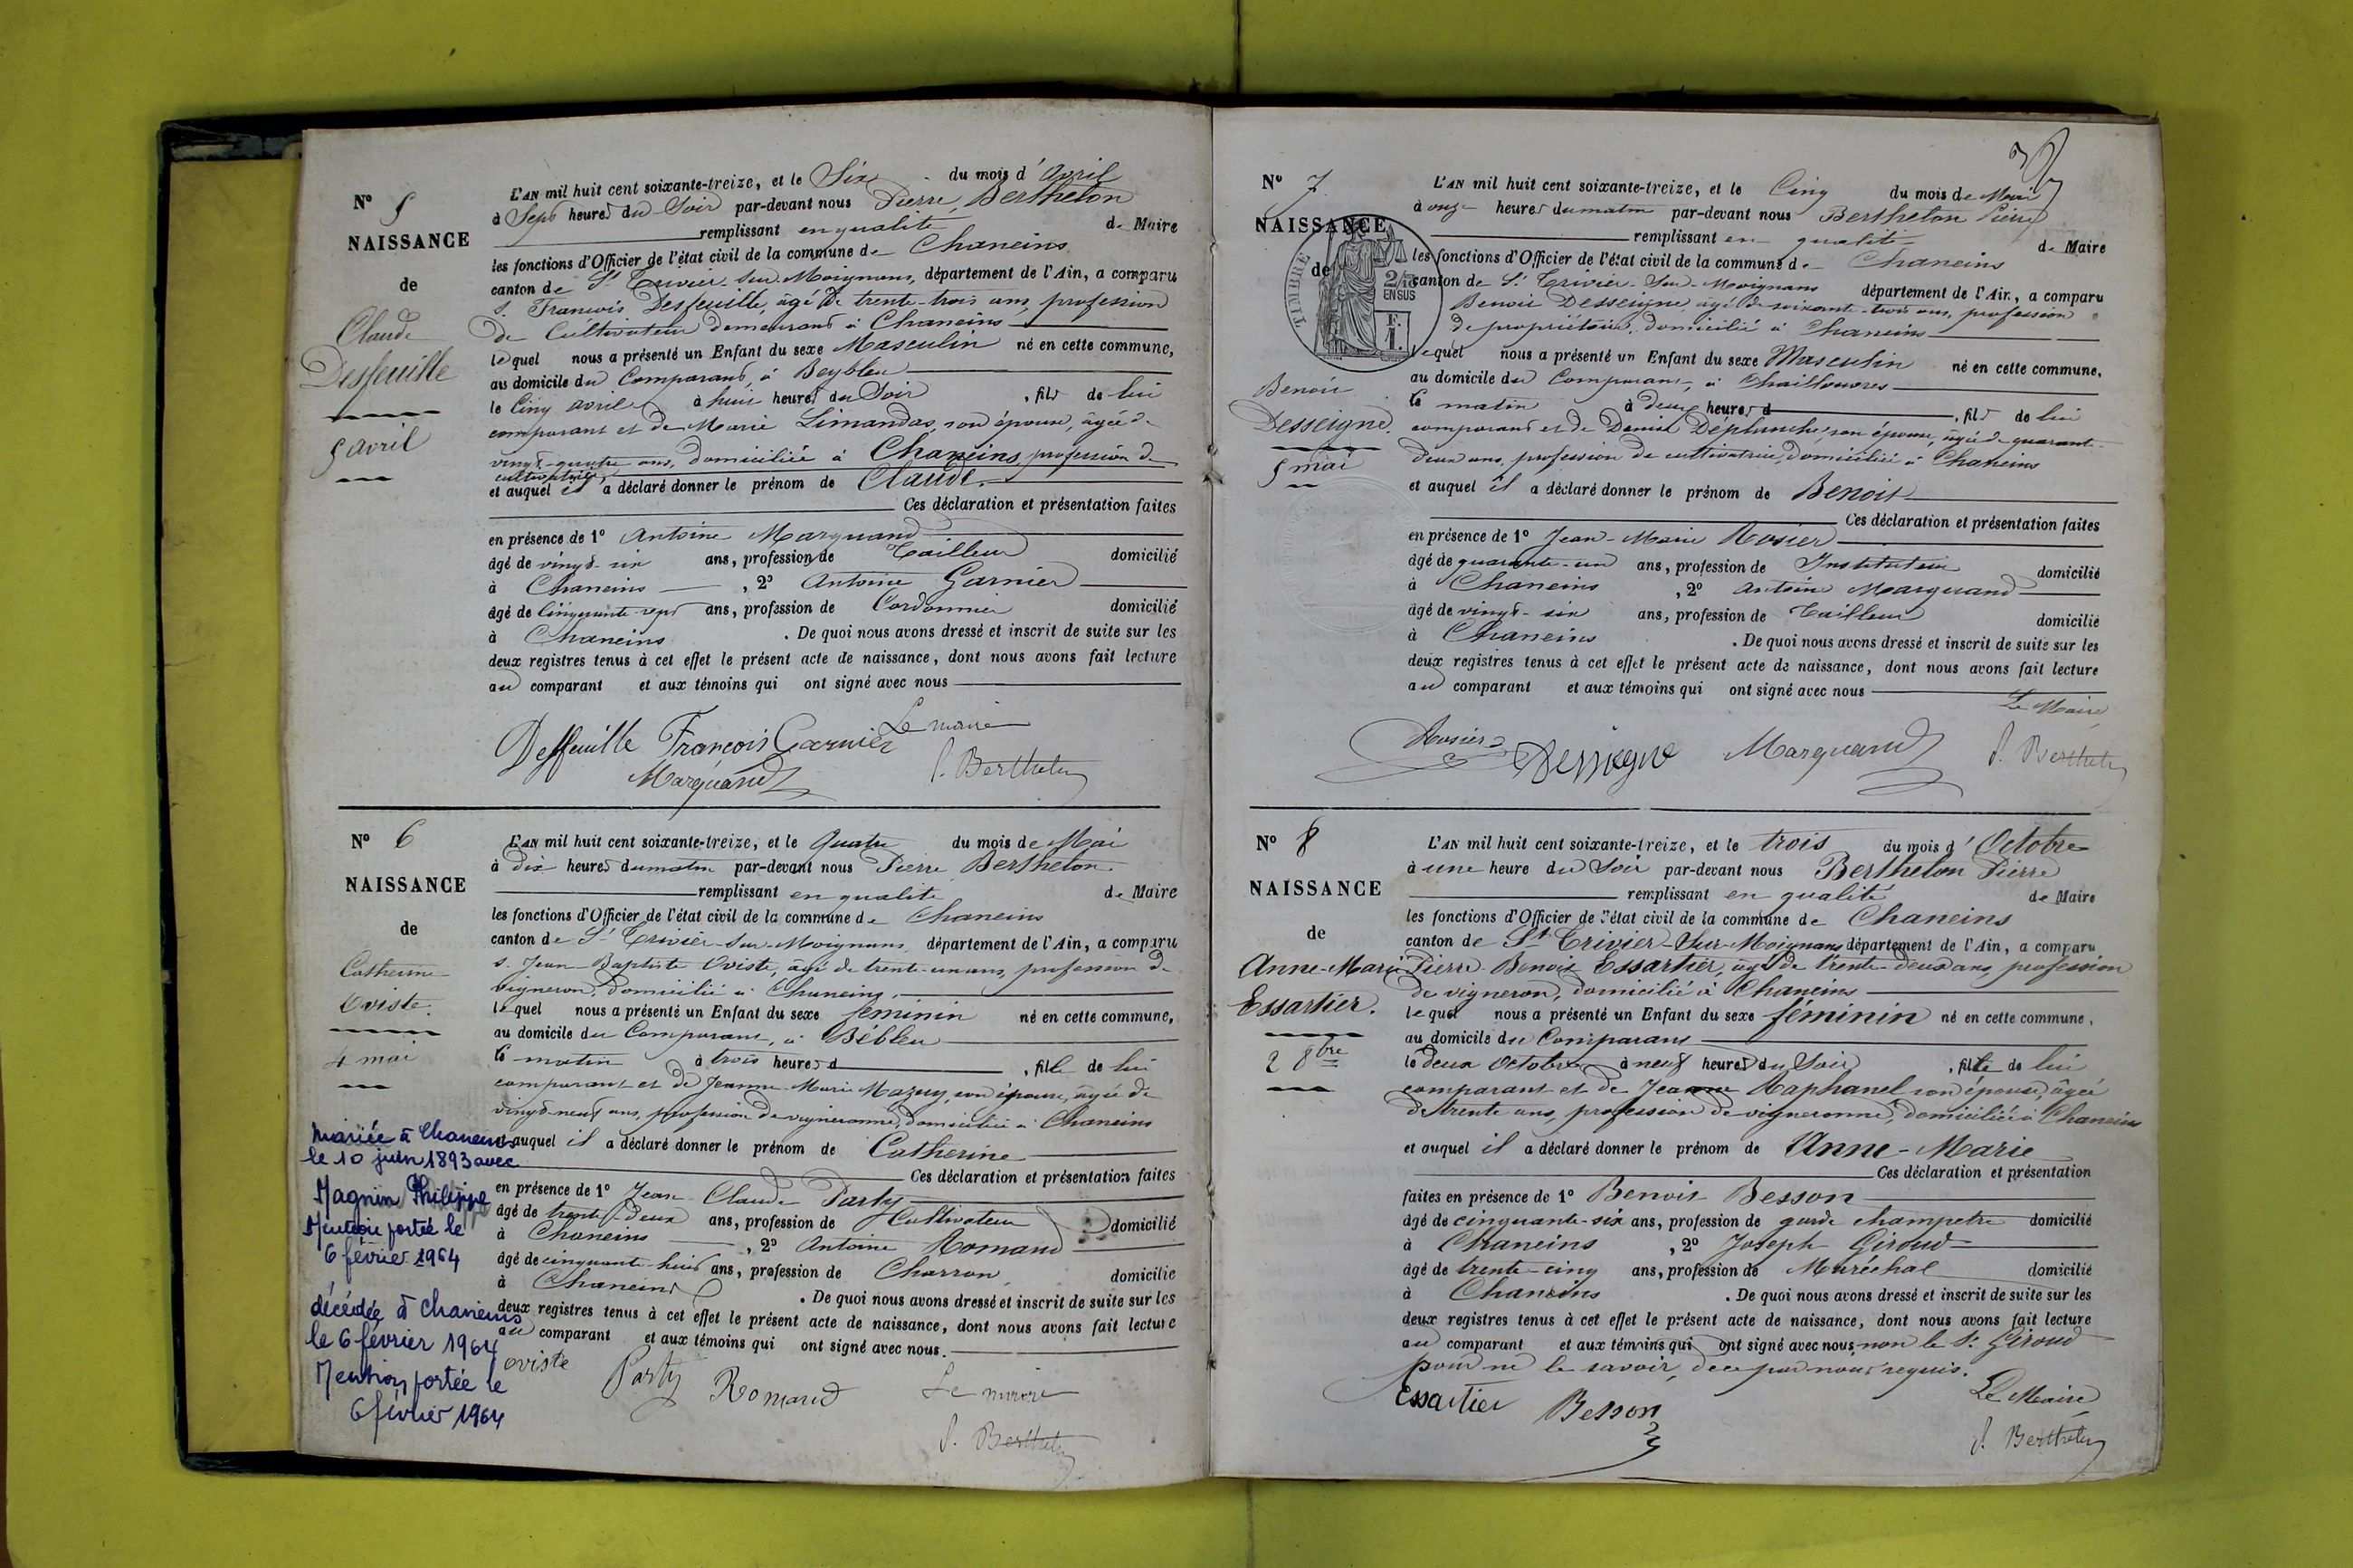 N° 5
NAISSANCE
de
Claude
Desfeuille
5 avril
L'AN mil huit cent soixante-treize, et le Six du mois d'Avril
à Sept heures du Soir par-devant nous Pierre Berthelon
remplissant en qualité de Maire
les fonctions d'Officier de l'état civil de la commune de Chaneins
canton de St Trivier-sur-Moignans, département de l'Ain, a comparu
s. François Desfeuille, âgé de trente-trois ans, profession
de Cultivateur demeurant à Chaneins
lequel nous a présenté un Enfant du sexe Masculin né en cette commune,
au domicile du Comparant, à Beybleu
le Cinq avril à huit heures du Soir, fils de lui
comparant et de Marie Limandas, son épouse, âgée de
vingt-quatre ans, domiciliée à Chaneins, profession de
cultivatrice,
et auquel il a déclaré donner le prénom de Claude.
Ces déclaration et présentation faites
en présence de 1° Antoine Marquand
âgé de vingt-six ans, profession de Tailleur domicilié
à Chaneins, 2° Antoine Garnier
âgé de Cinquante-sept ans, profession de Cordonnier domicilié
à Chaneins. De quoi nous avons dressé et inscrit de suite sur les
deux registres tenus à cet effet le présent acte de naissance, dont nous avons fait lecture
au comparant et aux témoins qui ont signé avec nous
Le maire
Desfeuille François Garnier
Marquand P. Berthelon
N° 6
NAISSANCE
de
Catherine
Oviste.
4 mai
mariée à Chaneins
le 10 juin 1893 avec
Magnin Philippe
Mention portée le
6 février 1964
décédée à Chaneins
le 6 février 1964
Mention portée le
6 février 1964
L'AN mil huit cent soixante-treize, et le Quatre du mois de Mai
à dix heures du matin par-devant nous Pierre Berthelon
remplissant en qualité de Maire
les fonctions d'Officier de l'état civil de la commune de Chaneins
canton de St Trivier-sur-Moignans, département de l'Ain, a comparu
s. Jean-Baptiste Oviste, âgé de trente-un ans, profession de
vigneron, domicilié à Chaneins,
lequel nous a présenté un Enfant du sexe féminin né en cette commune,
au domicile du Comparant, à Bébleu
le matin à trois heures d, fille de lui
comparant et de Jeanne-Marie Mazuy, son épouse, âgée de
vingt-neuf ans, profession de vigneronne, domiciliée à Chaneins
et auquel il a déclaré donner le prénom de Catherine
Ces déclaration et présentation faites
en présence de 1° Jean Claude Party
âgé de trente-deux ans, profession de Cultivateur domicilié
à Chaneins, 2° Antoine Romand
âgé de cinquante-huit ans, profession de Charron, domicilié
à Chaneins. De quoi nous avons dressé et inscrit de suite sur les
deux registres tenus à cet effet le présent acte de naissance, dont nous avons fait lecture
au comparant et aux témoins qui ont signé avec nous.
oviste Party Romand Le maire
P. Berthelon
N° 7
NAISSANCE
de
TIMBRE
2/10
EN SUS
F.
1.
Benoit
Desseigne.
5 mai
L'AN mil huit cent soixante-treize, et le Cinq du mois de Mai
à onze heures du matin par-devant nous Berthelon Pierre
remplissant en qualité de Maire
les fonctions d'Officier de l'état civil de la commune de Chaneins
canton de St Trivier-Sur-Moignans département de l'Ain, a comparu
Benoit Desseigne, âgé de soixante-trois ans, profession
de propriétaire, domicilié à Chaneins
lequel nous a présenté un Enfant du sexe Masculin né en cette commune,
au domicile du Comparant, à
le matin à deux heures d, fils de lui
comparant et de Denise Déplanche, son épouse, âgée de quarante-
deux ans, profession de cultivatrice, domiciliée à Chaneins
et auquel il a déclaré donner le prénom de Benoit
Ces déclaration et présentation faites
en présence de 1° Jean-Marie Rosier
âgé de quarante-un ans, profession de Instituteur domicilié
à Chaneins, 2° Antoine Marquand
âgé de vingt-six ans, profession de Tailleur domicilié
à Chaneins. De quoi nous avons dressé et inscrit de suite sur les
deux registres tenus à cet effet le présent acte de naissance, dont nous avons fait lecture
au comparant et aux témoins qui ont signé avec nous
Le Maire
Rosier Desseigne Marquand P. Berthelon
N° 8
NAISSANCE
de
Anne-Marie
Essartier.
2 8bre
L'AN mil huit cent soixante-treize, et le trois du mois d'Octobre
à une heure du Soir par-devant nous Berthelon Pierre
remplissant en qualité de Maire
les fonctions d'Officier de l'état civil de la commune de Chaneins
canton de St Trivier-Sur-Moignans département de l'Ain, a comparu
Pierre-Benoit Essartier, âgé de trente-deux ans, profession
de vigneron, domicilié à Chaneins
lequel nous a présenté un Enfant du sexe féminin né en cette commune,
au domicile du Comparant
le deux Octobre à neuf heures du Soir, fille de lui
comparant et de Jeanne Raphanel son épouse, âgée
de trente ans, profession de vigneronne, domiciliée à Chaneins
et auquel il a déclaré donner le prénom de Anne-Marie
Ces déclaration et présentation
faites en présence de 1° Benoit Besson
âgé de cinquante-six ans, profession de garde champetre domicilié
à Chaneins, 2° Joseph Giroud
âgé de trente-cinq ans, profession de Maréchal domicilié
à Chaneins. De quoi nous avons dressé et inscrit de suite sur les
deux registres tenus à cet effet le présent acte de naissance, dont nous avons fait lecture
au comparant et aux témoins qui ont signé avec nous, non le s. Giroud
pour ne le savoir, de ce par nous requis.
Le Maire
Essartier Besson P. Berthelon